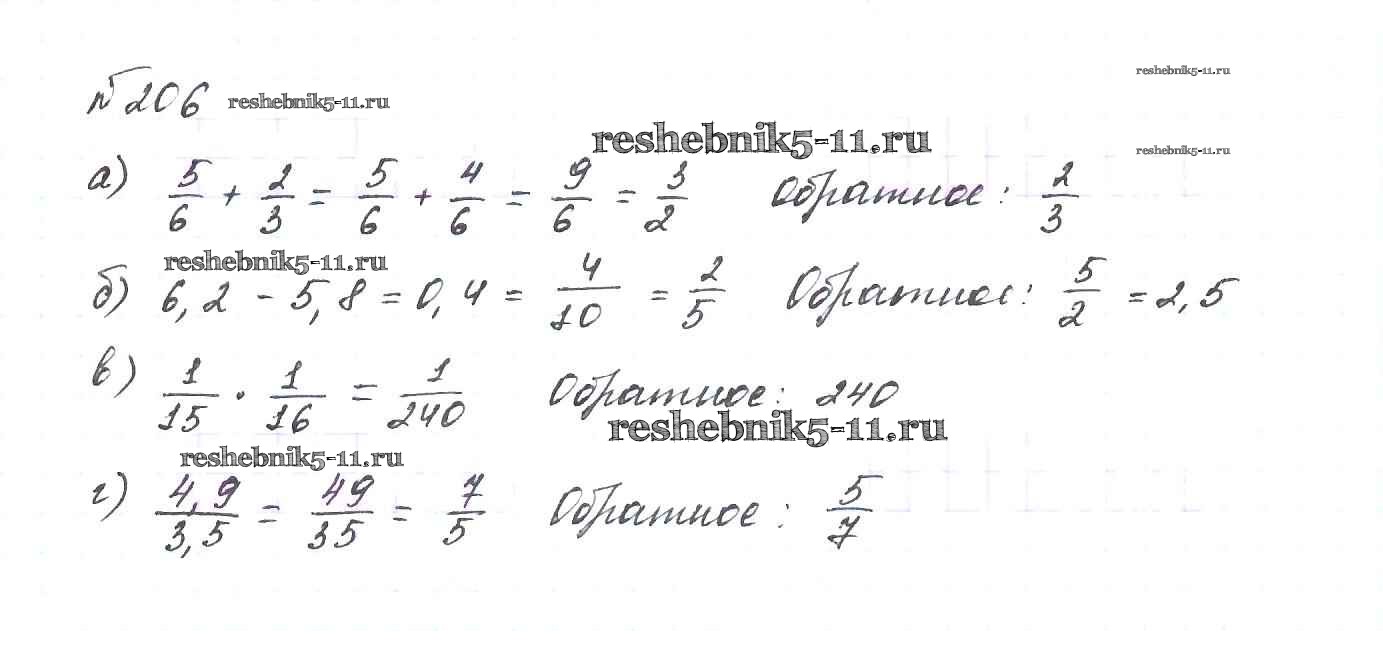 reshebnik5-11.ru
№206 reshebnik5-11.ru
reshebnik5-11.ru
reshebnik5-11.ru
а) 5/6 + 2/3 = 5/6 + 4/6 = 9/6 = 3/2 Обратное: 2/3
reshebnik5-11.ru
б) 6,2 - 5,8 = 0,4 = 4/10 = 2/5 Обратное: 5/2 = 2,5
в) 1/15 · 1/16 = 1/240 Обратное: 240
reshebnik5-11.ru
reshebnik5-11.ru
г) 4,9/3,5 = 49/35 = 7/5 Обратное: 5/7